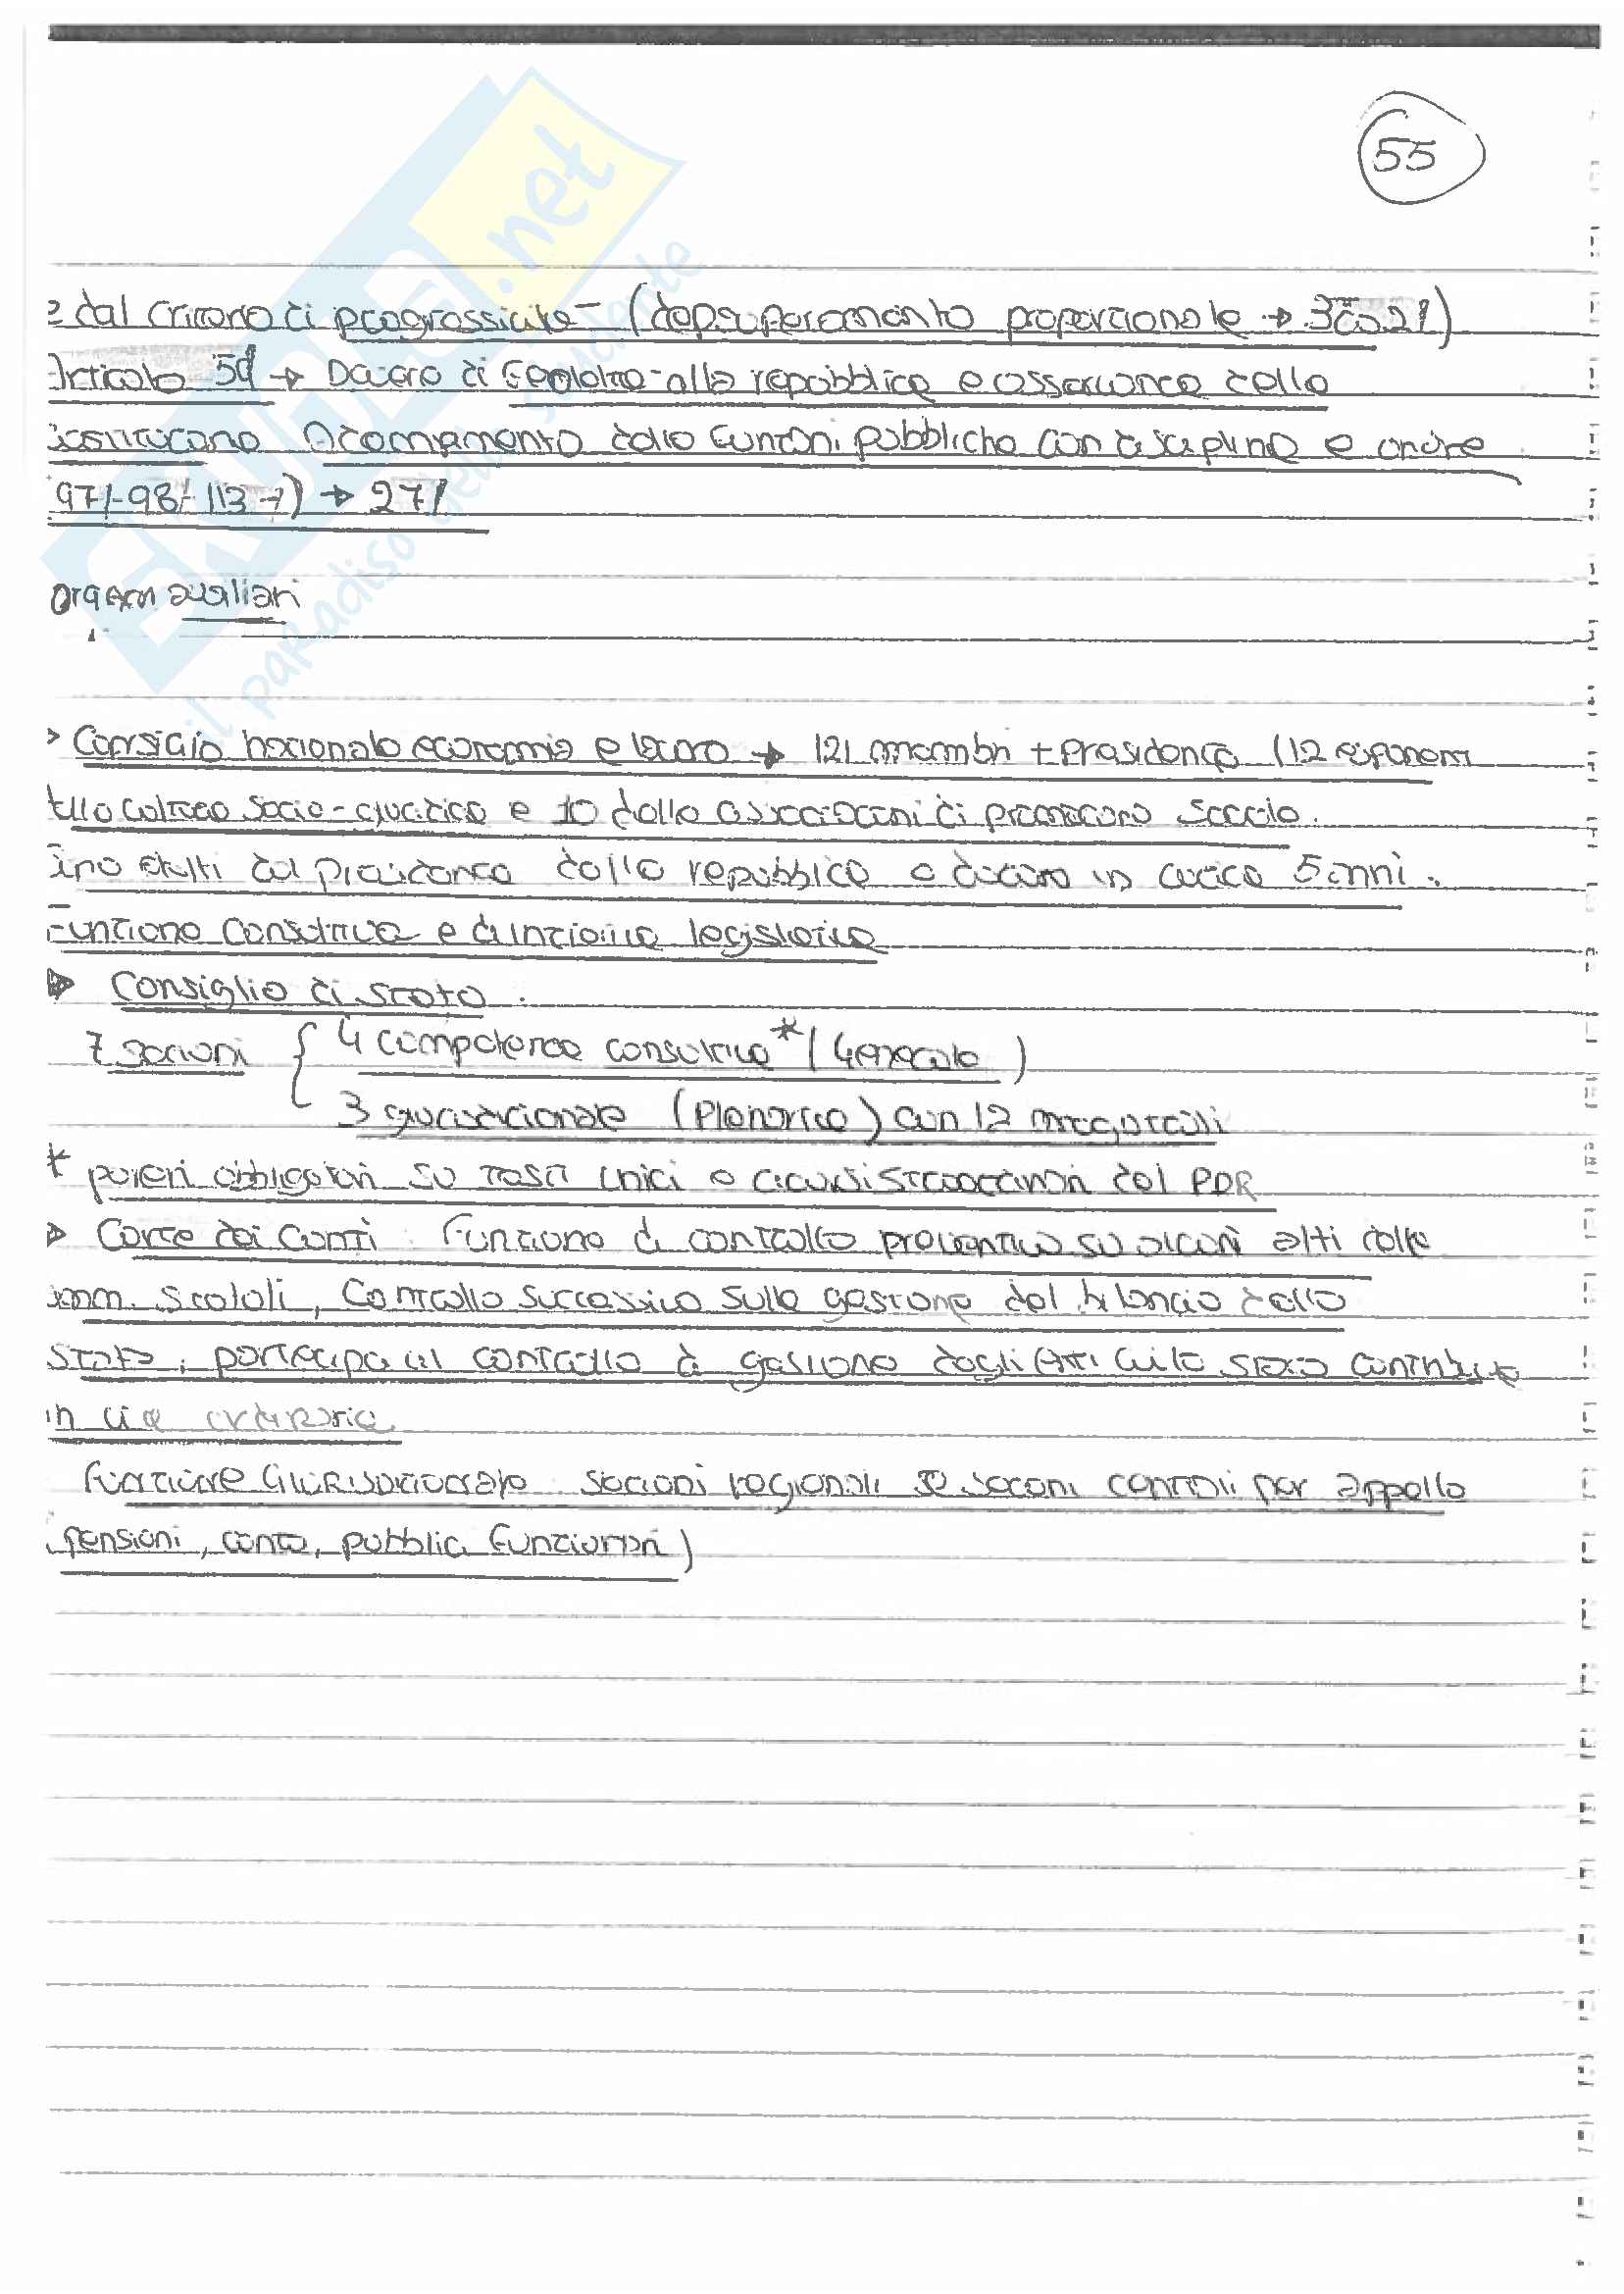 55
e dal criterio di progressività - (depauperamento proporzionale →
Articolo 54 → Dovere di Fedeltà alla repubblica e osservanza della
Costituzione Adempimento delle funzioni pubbliche con disciplina e onore
97/-98/-113 →) → 27/
Organi ausiliari
> Consiglio nazionale economia e lavoro → 121 membri + Presidenza (12 esponenti
della cultura socio-giuridica e 10 dalle associazioni di promozione sociale.
Sono eletti dal presidente della repubblica e durano in carica 5 anni.
Funzione consultiva e di iniziativa legislativa
> Consiglio di stato.
7 sezioni { 4 competenze consultiva * (Generale)
3 giurisdizionale (Plenaria) con 12 magistrati
* pareri obbligatori su testi unici o ricorsi straordinari del PDR
> Corte dei Conti. Funzione di controllo preventivo su alcuni atti delle
amm. Statali, Controllo successivo sulla gestione del bilancio dello
Stato, partecipa al controllo di gestione degli enti cui lo stato contribuisce
in via ordinaria
Funzione Giurisdizionale sezioni regionali sezioni centrali per appello
pensioni, conto, pubblici funzionari)
SKUOLA.net
il paradiso dello studente